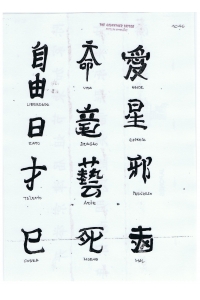 自由
LIBERDADE
命
VIDA
愛
AMOR
日
竜
DRAGÃO
星
ESTRELA
才
TALENTO
藝
ARTE
邪
巳
COBRA
死
MORTE
MAL